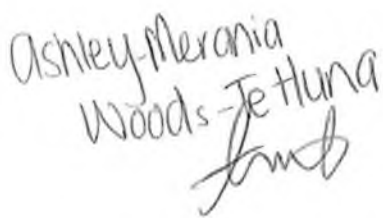 Ashley-Merania
Woods-Tetluna